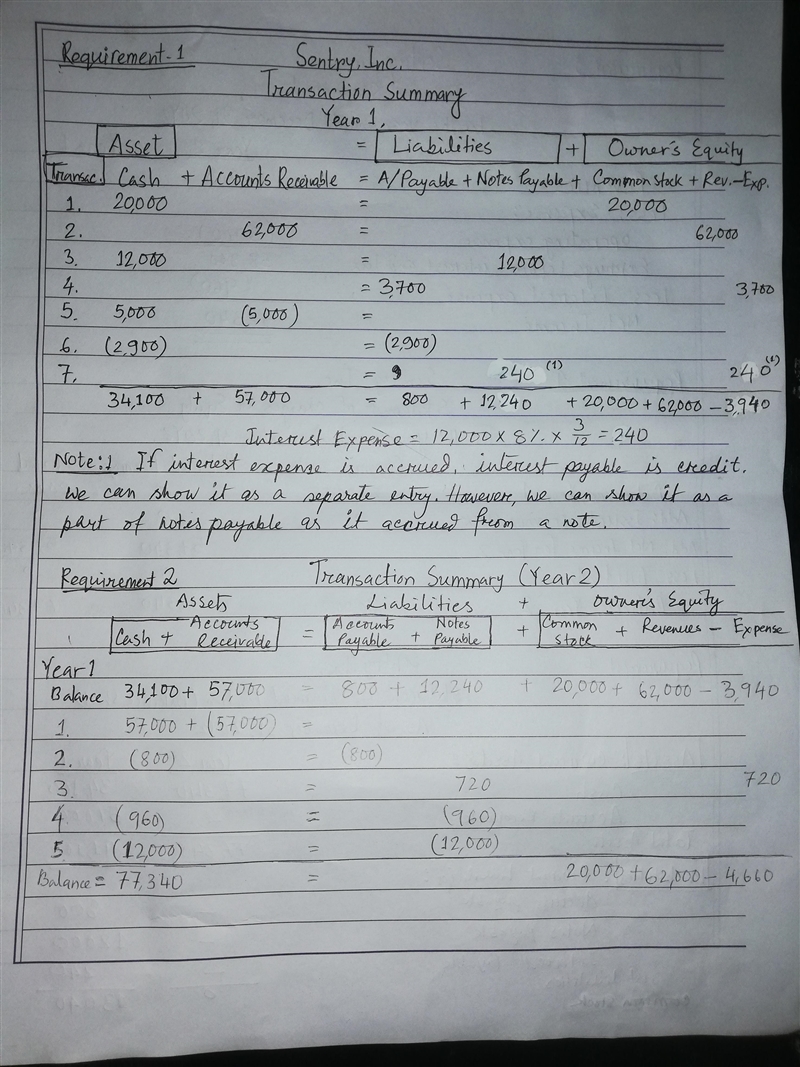 Requirement-1 Sentry, Inc.
Transaction Summary
Year 1.
Asset = Liabilities + Owner's Equity
Transac. Cash + Accounts Receivable = A/Payable + Notes Payable + Common Stock + Rev. - Exp.
1. 20,000 = 20,000
2. 62,000 = 62,000
3. 12,000 = 12,000
4. = 3,700 3,700
5. 5,000 (5,000) =
6. (2,900) = (2,900)
7. = 240 (1) 240 (1)
34,100 + 57,000 = 800 + 12,240 + 20,000 + 62,000 - 3,940
Interest Expense = 12,000 x 8% x 3/12 = 240
Note:1 If interest expense is accrued, interest payable is credit.
We can show it as a separate entry. However, we can show it as a
part of notes payable as it accrued from a note.
Requirement 2 Transaction Summary (Year 2)
Assets Liabilities + Owner's Equity
Cash + Accounts Receivable = Accounts Payable + Notes Payable + Common stock + Revenues - Expense
Year 1
Balance 34,100 + 57,000 = 800 + 12,240 + 20,000 + 62,000 - 3,940
1. 57,000 + (57,000) =
2. (800) = (800)
3. = 720 720
4 (960) = (960)
5 (12,000) = (12,000)
Balance = 77,340 = 20,000 + 62,000 - 4,660